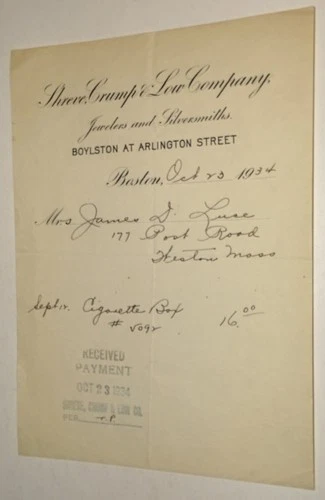 Shreve, Crump & Low Company,
Jewelers and Silversmiths.
BOYLSTON AT ARLINGTON STREET
Boston, Oct 23 1934
Mrs James D. Luce
177 Post Road
Weston Mass
Sept 12. Cigarette Box 16.00
# 5092
RECEIVED
PAYMENT
OCT 23 1934
SHREVE, CRUMP & LOW CO.
PER